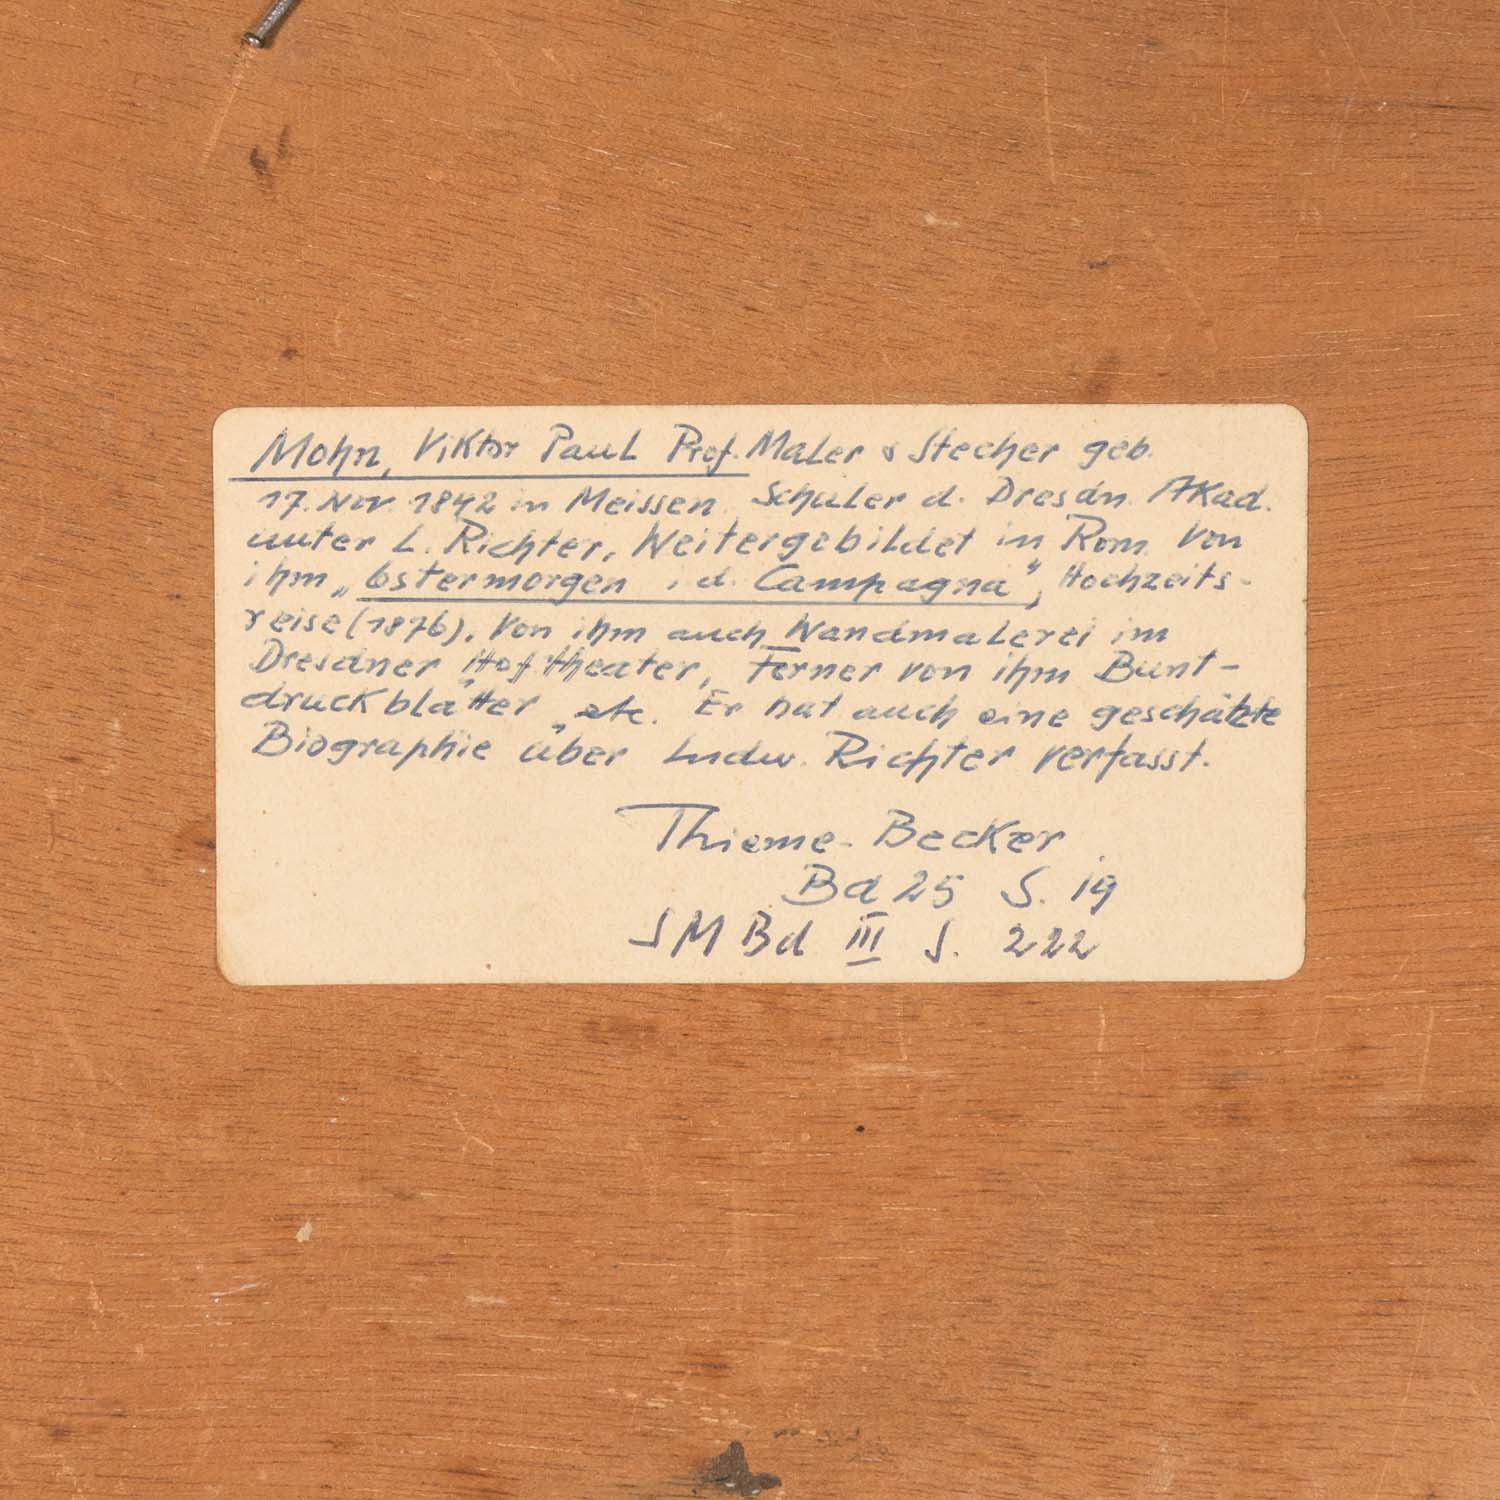 Mohn, Viktor Paul Prof. Maler & Stecher geb.
17. Nov. 1842 in Meissen. Schüler d. Dresdn. Akad.
unter L. Richter, Weitergebildet in Rom. Von
ihm „Ostermorgen i. d. Campagna", Hochzeits-
reise (1876). Von ihm auch Wandmalerei im
Dresdner Hoftheater, Ferner von ihm Bunt-
druckblätter etc. Er hat auch eine geschätzte
Biographie über Ludw. Richter verfasst.
Thieme-Becker
Bd 25 S. 19
SM Bd III S. 222